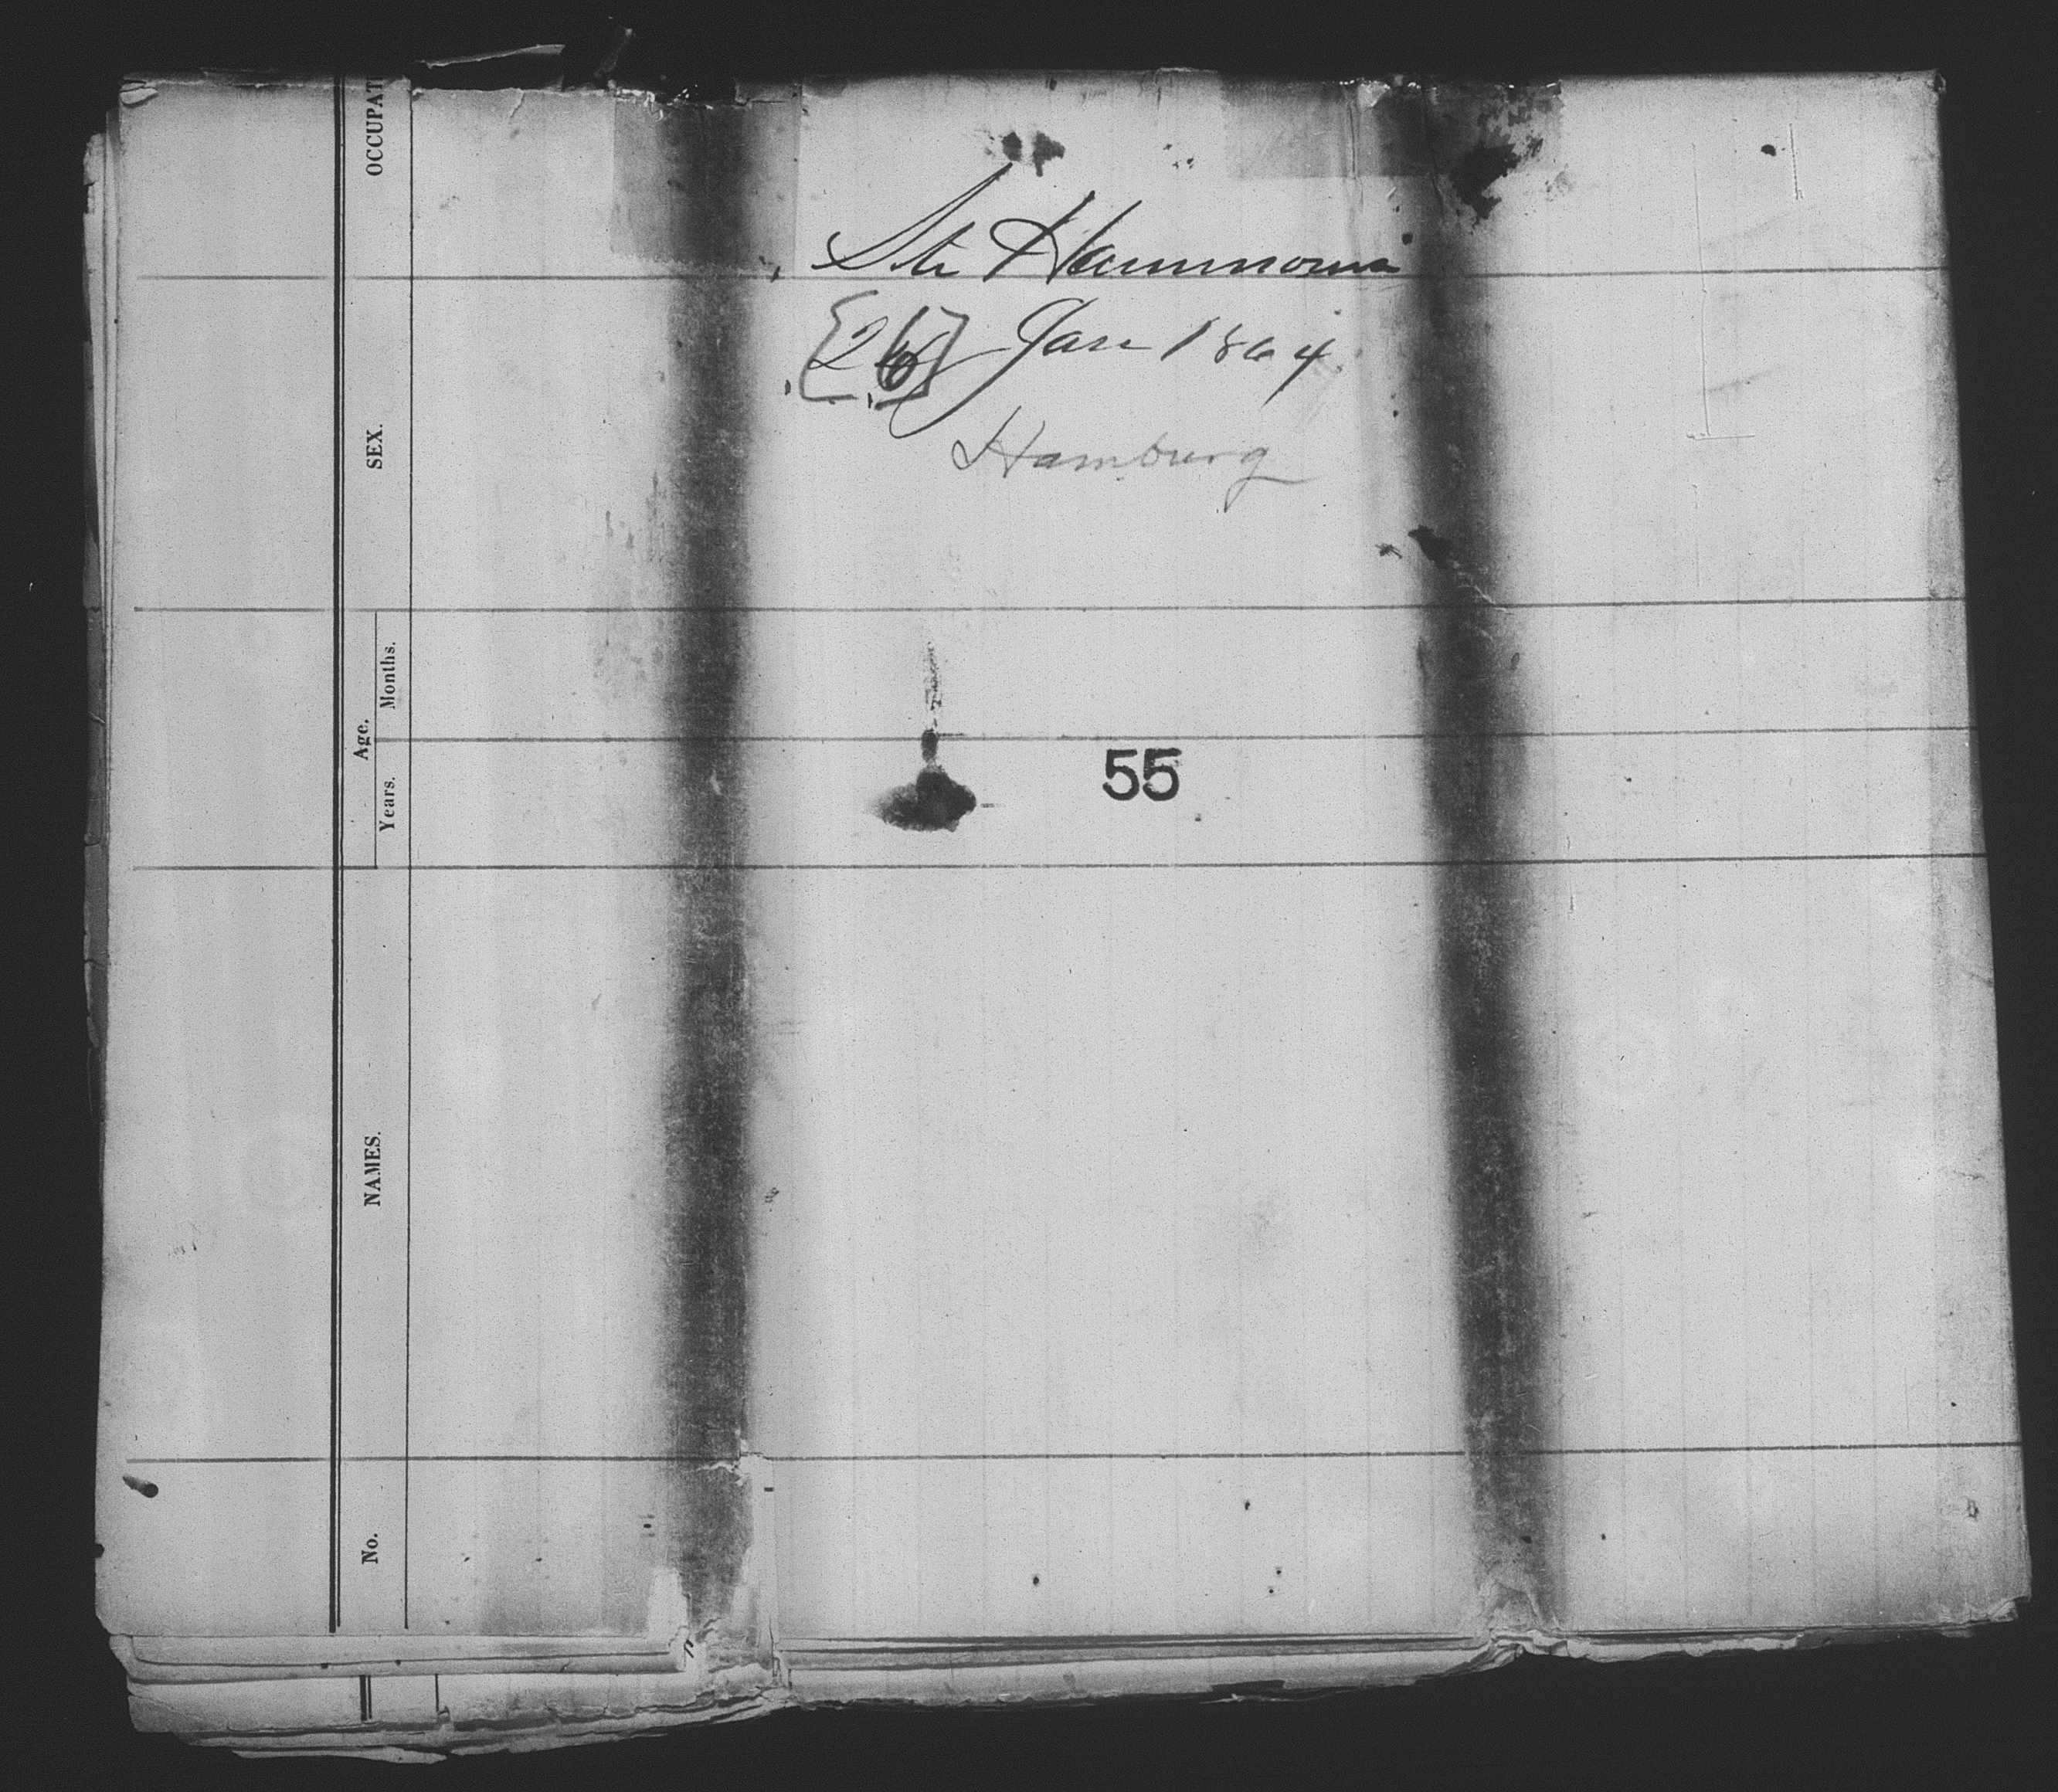 Str Hammonia
[26] Jan 1864
Hamburg
55
OCCUPAT
SEX.
Age.
Months.
Years.
NAMES.
No.